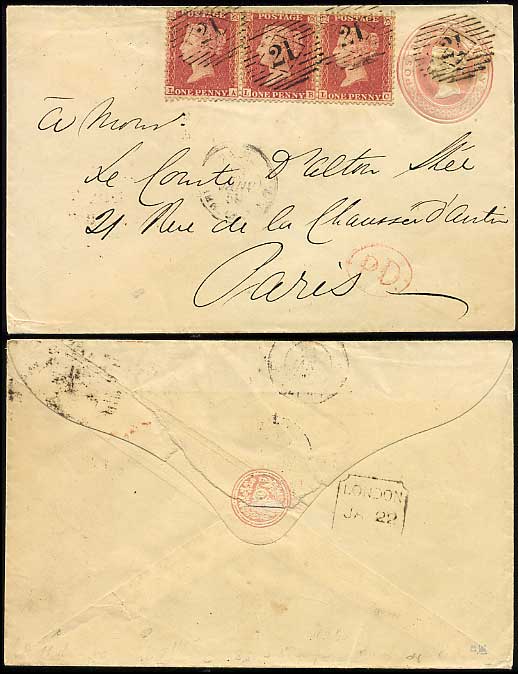 POSTAGE POSTAGE POSTAGE
21 21 21 21
L ONE PENNY A L ONE PENNY B L ONE PENNY C
à Monsr.
Le Comte D'alton Shée
21 Rue de la Chaussée d'Antin
Paris
P.D.
LONDON
JA 22